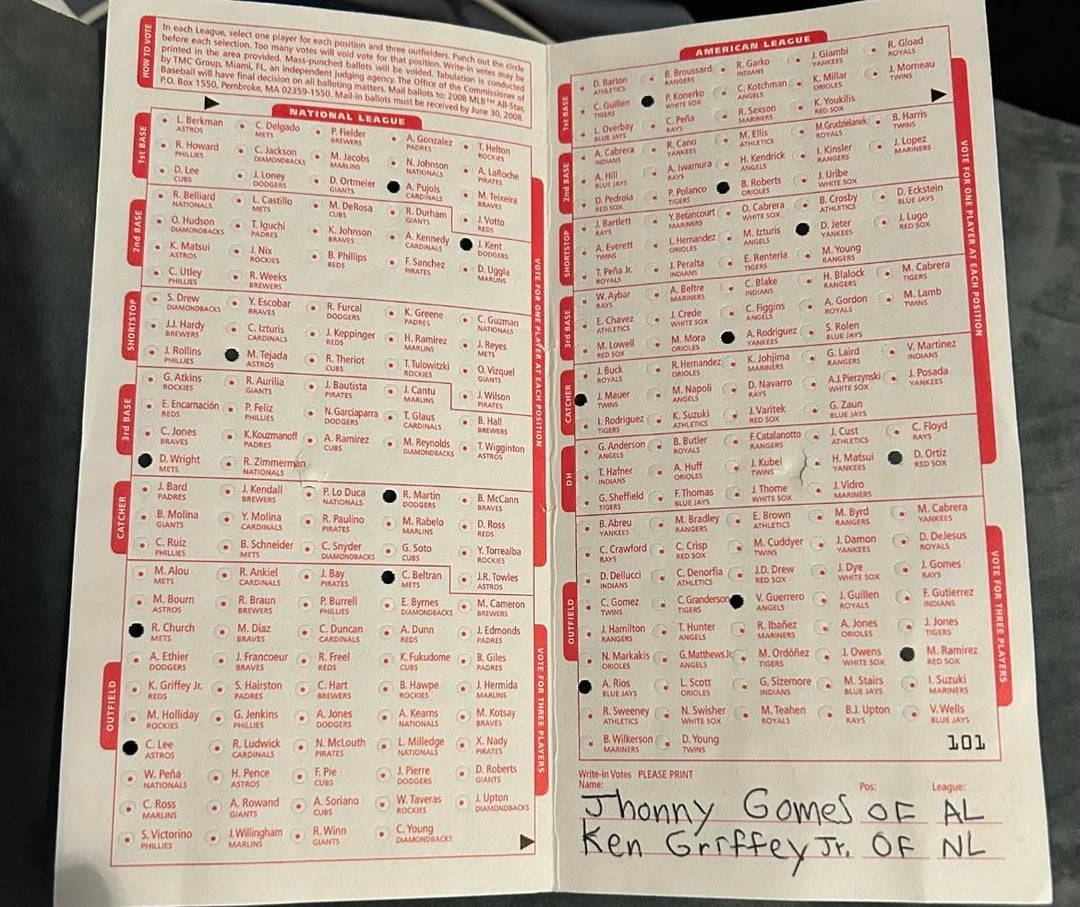 HOW TO VOTE
In each League, select one player for each position and three outfielders. Punch out the circle
before each selection. Too many votes will void vote for that position. Write-in votes may be
printed in the area provided. Mass-punched ballots will be voided. Tabulation is conducted
by TMC Group, Miami, FL, an independent judging agency. The Office of the Commissioner of
Baseball will have final decision on all balloting matters. Mail ballots to: 2008 MLB™ All-Star,
P.O. Box 1550, Pembroke, MA 02359-1550. Mail-in ballots must be received by June 30, 2008.
NATIONAL LEAGUE
1st BASE
L. Berkman C. Delgado P. Fielder A. Gonzalez T. Helton
ASTROS METS BREWERS PADRES ROCKIES
R. Howard C. Jackson M. Jacobs N. Johnson A. LaRoche
PHILLIES DIAMONDBACKS MARLINS NATIONALS PIRATES
D. Lee J. Loney D. Ortmeier A. Pujols M. Teixeira
CUBS DODGERS GIANTS CARDINALS BRAVES
J. Votto
REDS
2nd BASE
R. Belliard L. Castillo M. DeRosa R. Durham
NATIONALS METS CUBS GIANTS
O. Hudson T. Iguchi K. Johnson A. Kennedy J. Kent
DIAMONDBACKS PADRES BRAVES CARDINALS DODGERS
K. Matsui J. Nix B. Phillips F. Sanchez D. Uggla
ASTROS ROCKIES REDS PIRATES MARLINS
C. Utley R. Weeks
PHILLIES BREWERS
SHORTSTOP
S. Drew Y. Escobar R. Furcal K. Greene C. Guzman
DIAMONDBACKS BRAVES DODGERS PADRES NATIONALS
J.J. Hardy C. Izturis J. Keppinger H. Ramirez J. Reyes
BREWERS CARDINALS REDS MARLINS METS
J. Rollins M. Tejada R. Theriot T. Tulowitzki O. Vizquel
PHILLIES ASTROS CUBS ROCKIES GIANTS
J. Wilson
PIRATES
3rd BASE
G. Atkins R. Aurilia J. Bautista J. Cantu
ROCKIES GIANTS PIRATES MARLINS
E. Encarnación P. Feliz N. Garciaparra T. Glaus B. Hall
REDS PHILLIES DODGERS CARDINALS BREWERS
C. Jones K.Kouzmanoff A. Ramirez M. Reynolds T. Wigginton
BRAVES PADRES CUBS DIAMONDBACKS ASTROS
D. Wright R. Zimmerman
METS NATIONALS
CATCHER
J. Bard J. Kendall P. Lo Duca R. Martin B. McCann
PADRES BREWERS NATIONALS DODGERS BRAVES
B. Molina Y. Molina R. Paulino M. Rabelo D. Ross
GIANTS CARDINALS PIRATES MARLINS REDS
C. Ruiz B. Schneider C. Snyder G. Soto Y. Torrealba
PHILLIES METS DIAMONDBACKS CUBS ROCKIES
J.R. Towles
ASTROS
OUTFIELD
M. Alou R. Ankiel J. Bay C. Beltran
METS CARDINALS PIRATES METS
M. Bourn R. Braun P. Burrell E. Byrnes M. Cameron
ASTROS BREWERS PHILLIES DIAMONDBACKS BREWERS
R. Church M. Diaz C. Duncan A. Dunn J. Edmonds
METS BRAVES CARDINALS REDS PADRES
A. Ethier J. Francoeur R. Freel K. Fukudome B. Giles
DODGERS BRAVES REDS CUBS PADRES
K. Griffey Jr. S. Hairston C. Hart B. Hawpe J. Hermida
REDS PADRES BREWERS ROCKIES MARLINS
M. Holliday G. Jenkins A. Jones A. Kearns M. Kotsay
ROCKIES PHILLIES DODGERS NATIONALS BRAVES
C. Lee R. Ludwick N. McLouth L. Milledge X. Nady
ASTROS CARDINALS PIRATES NATIONALS PIRATES
W. Peña H. Pence F. Pie J. Pierre D. Roberts
NATIONALS ASTROS CUBS DODGERS GIANTS
C. Ross A. Rowand A. Soriano W. Taveras J. Upton
MARLINS GIANTS CUBS ROCKIES DIAMONDBACKS
S. Victorino J. Willingham R. Winn C. Young
PHILLIES MARLINS GIANTS DIAMONDBACKS
VOTE FOR ONE PLAYER AT EACH POSITION
VOTE FOR THREE PLAYERS
AMERICAN LEAGUE
1st BASE
D. Barton B. Broussard R. Garko J. Giambi R. Gload
ATHLETICS RANGERS INDIANS YANKEES ROYALS
C. Guillen P. Konerko C. Kotchman K. Millar J. Morneau
TIGERS WHITE SOX ANGELS ORIOLES TWINS
L. Overbay C. Peña R. Sexson K. Youkilis
BLUE JAYS RAYS MARINERS RED SOX
2nd BASE
A. Cabrera R. Cano M. Ellis M.Grudzielanek B. Harris
INDIANS YANKEES ATHLETICS ROYALS TWINS
A. Hill A. Iwamura H. Kendrick I. Kinsler J. Lopez
BLUE JAYS RAYS ANGELS RANGERS MARINERS
D. Pedroia P. Polanco B. Roberts J. Uribe
RED SOX TIGERS ORIOLES WHITE SOX
SHORTSTOP
J. Bartlett Y. Betancourt O. Cabrera B. Crosby D. Eckstein
RAYS MARINERS WHITE SOX ATHLETICS BLUE JAYS
A. Everett L. Hernandez M. Izturis D. Jeter J. Lugo
TWINS ORIOLES ANGELS YANKEES RED SOX
T. Peña Jr. J. Peralta E. Renteria M. Young
ROYALS INDIANS TIGERS RANGERS
3rd BASE
W. Aybar A. Beltre C. Blake H. Blalock M. Cabrera
RAYS MARINERS INDIANS RANGERS TIGERS
E. Chavez J. Crede C. Figgins A. Gordon M. Lamb
ATHLETICS WHITE SOX ANGELS ROYALS TWINS
M. Lowell M. Mora A. Rodriguez S. Rolen
RED SOX ORIOLES YANKEES BLUE JAYS
CATCHER
J. Buck R. Hernandez K. Johjima G. Laird V. Martinez
ROYALS ORIOLES MARINERS RANGERS INDIANS
J. Mauer M. Napoli D. Navarro A.J. Pierzynski J. Posada
TWINS ANGELS RAYS WHITE SOX YANKEES
I. Rodriguez K. Suzuki J. Varitek G. Zaun
TIGERS ATHLETICS RED SOX BLUE JAYS
DH
G. Anderson B. Butler F.Catalanotto J. Cust C. Floyd
ANGELS ROYALS RANGERS ATHLETICS RAYS
T. Hafner A. Huff J. Kubel H. Matsui D. Ortiz
INDIANS ORIOLES TWINS YANKEES RED SOX
G. Sheffield F. Thomas J. Thome J. Vidro
TIGERS BLUE JAYS WHITE SOX MARINERS
OUTFIELD
B. Abreu M. Bradley E. Brown M. Byrd M. Cabrera
YANKEES RANGERS ATHLETICS RANGERS YANKEES
C. Crawford C. Crisp M. Cuddyer J. Damon D. DeJesus
RAYS RED SOX TWINS YANKEES ROYALS
D. Dellucci C. Denorfia J.D. Drew J. Dye J. Gomes
INDIANS ATHLETICS RED SOX WHITE SOX RAYS
C. Gomez C.Granderson V. Guerrero J. Guillen F. Gutierrez
TWINS TIGERS ANGELS ROYALS INDIANS
J. Hamilton T. Hunter R. Ibañez A. Jones J. Jones
RANGERS ANGELS MARINERS ORIOLES TIGERS
N. Markakis G.Matthews Jr. M. Ordóñez J. Owens M. Ramirez
ORIOLES ANGELS TIGERS WHITE SOX RED SOX
A. Rios L. Scott G. Sizemore M. Stairs I. Suzuki
BLUE JAYS ORIOLES INDIANS BLUE JAYS MARINERS
R. Sweeney N. Swisher M. Teahen B.J. Upton V. Wells
ATHLETICS WHITE SOX ROYALS RAYS BLUE JAYS
B. Wilkerson D. Young
MARINERS TWINS
101
VOTE FOR ONE PLAYER AT EACH POSITION
VOTE FOR THREE PLAYERS
Write-in Votes PLEASE PRINT
Name: Pos: League:
Jhonny Gomes OF AL
Ken Griffey Jr. OF NL